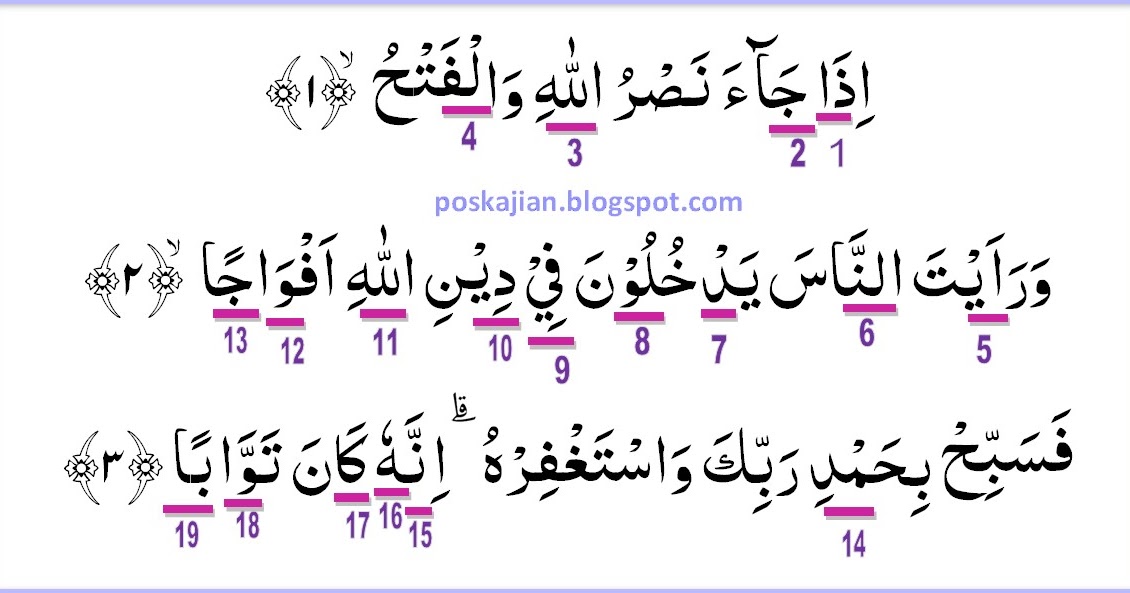 اِذَا جَآءَ نَصْرُ اللّٰهِ وَالْفَتْحُ ۙ ﴿١﴾
4 3 2 1
poskajian.blogspot.com
وَرَاَيْتَ النَّاسَ يَدْخُلُوْنَ فِيْ دِيْنِ اللّٰهِ اَفْوَاجًا ۙ ﴿٢﴾
13 12 11 10 9 8 7 6 5
فَسَبِّحْ بِحَمْدِ رَبِّكَ وَاسْتَغْفِرْهُ ۗ اِنَّهٗ كَانَ تَوَّابًا ﴿٣﴾
19 18 17 16 15 14